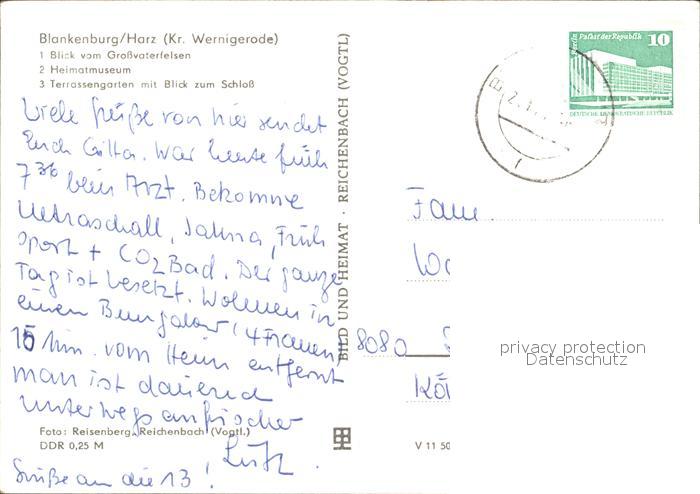 Blankenburg/Harz (Kr. Wernigerode)
1 Blick vom Großvaterfelsen
2 Heimatmuseum
3 Terrassengarten mit Blick zum Schloß
Viele Grüße von hier sendet
Euch Gitta. War heute früh
7 36 beim Arzt. Bekomme
Ultraschall, Sauna, Früh
sport + CO2 Bad. Der ganze
Tag ist besetzt. Wohnen in
einem Bungalow (4 Frauen)
15 Min. vom Heim entfernt
man ist dauernd
unterwegs an frischer
Luft.
Grüße an die 13!
Foto: Reisenberg, Reichenbach (Vogtl.)
DDR 0,25 M
BILD UND HEIMAT · REICHENBACH (VOGTL)
V 11 50
Palast der Republik
10
DEUTSCHE DEMOKRATISCHE REPUBLIK
Fam.
8080
privacy protection
Datenschutz